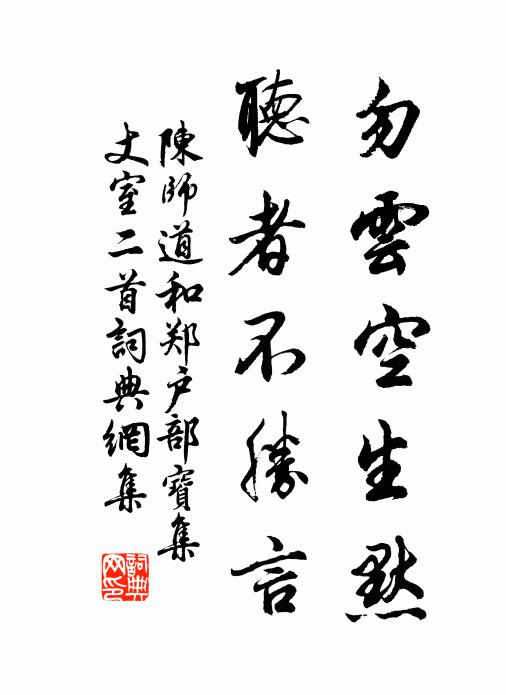 勿雲空生默
聽者不勝言
陳師道和郑户部寶集
丈室二首詞典網集
詞典
网印